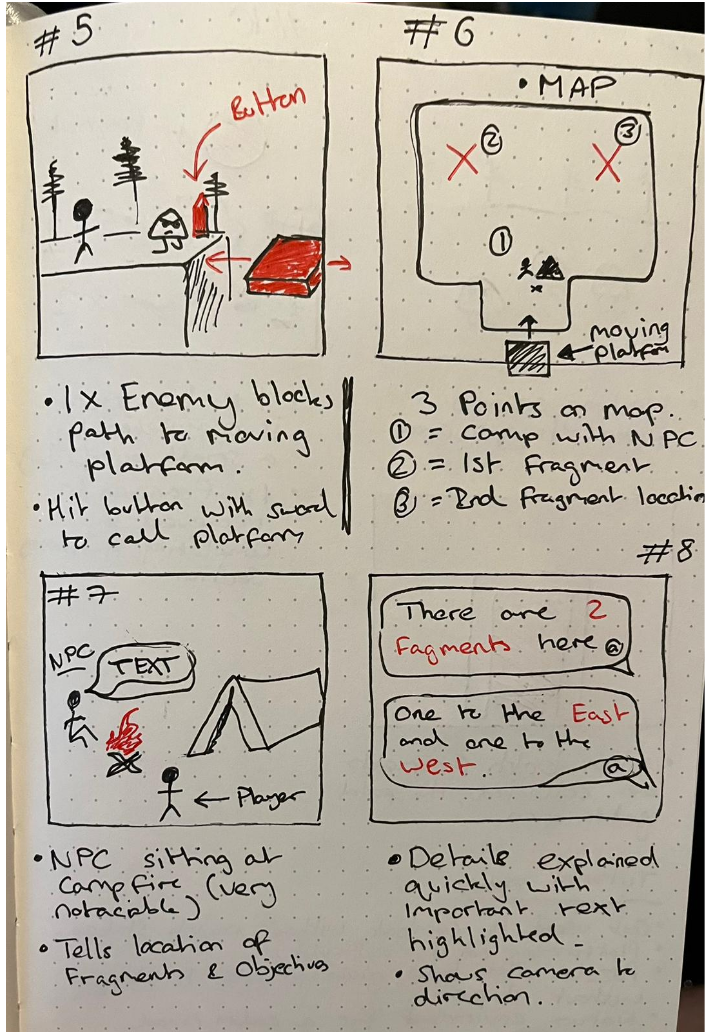 #5
Button
• 1x Enemy blocks
path to moving
platform.
• Hit button with sword
to call platform
#6
• MAP
②
③
①
moving
platform
3 Points on map.
① = Camp with NPC
② = 1st Fragment
③ = 2nd Fragment location
#7
NPC
TEXT
← Player
• NPC sitting at
Campfire (very
notaciable)
• Tells location of
Fragments & Objectives
#8
There are 2
Fagments here ⓐ
One to the East
and one to the
West. ⓐ
• Details explained
quickly with
Important text
highlighted.
• Shows camera to
direction.